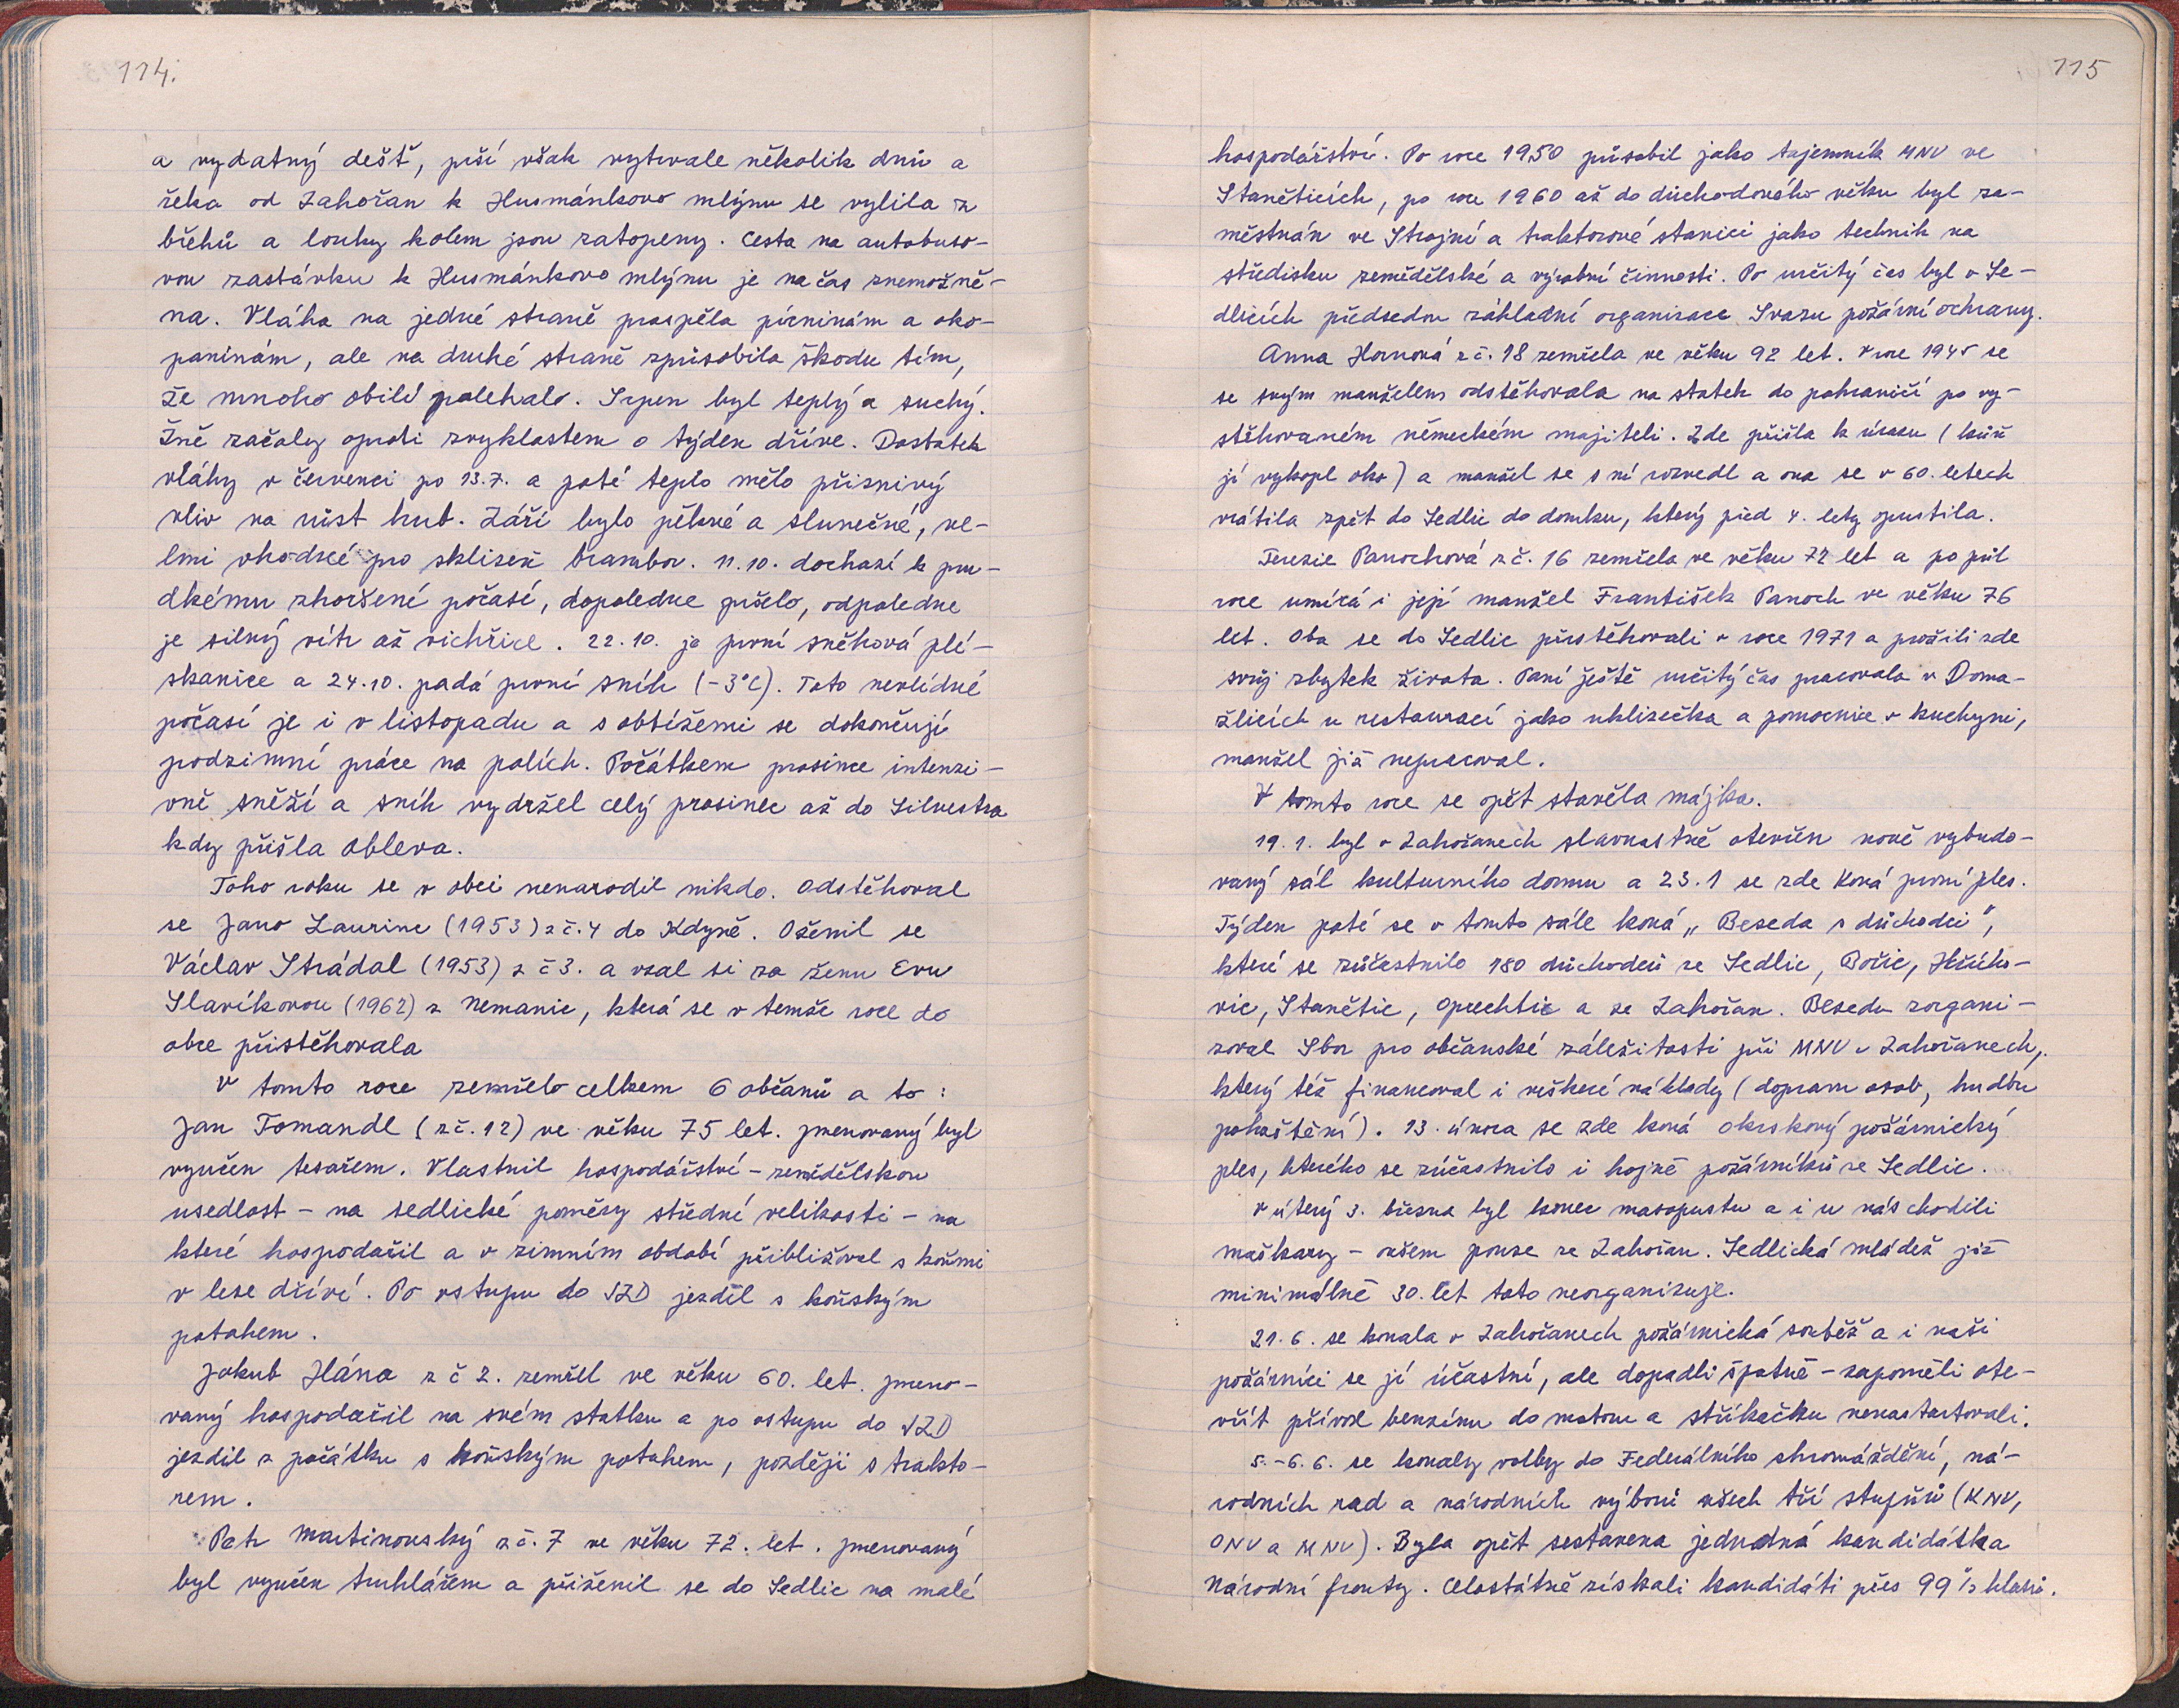 114.
a vydatný dešť, prší však vytrvale několik dnů a
řeka od Zahořan k Husmánkovo mlýnu se vylila z
břehů a louky kolem jsou zatopeny. Cesta na autobuso-
vou zastávku k Husmánkovo mlýnu je na čas znemožně-
na. Vláha na jedné straně prospěla pícninám a oko-
paninám, ale na druhé straně způsobila škodu tím,
že mnoho obilí polehalo. Srpen byl teplý a suchý.
Žně začaly oproti zvyklostem o týden dříve. Dostatek
vláhy v červenci po 13.7. a poté teplo mělo příznivý
vliv na růst hub. Září bylo pěkné a slunečné, ve-
lmi vhodné pro sklizeň brambor. 11.10. dochází k pru-
dkému zhoršení počasí, dopoledne pršelo, odpoledne
je silný vítr až vichřice. 22.10. je první sněhová plí-
skanice a 24.10. padá první sníh (-3°C). Toto nevlídné
počasí je i v listopadu a s obtížemi se dokončují
podzimní práce na polích. Počátkem prosince intenzi-
vně sněží a sníh vydržel celý prosinec až do Silvestra
kdy přišla obleva.
Toho roku se v obci nenarodil nikdo. Odstěhoval
se Jano Laurinc (1953) z č.4 do Kdyně. Oženil se
Václav Strádal (1953) z č 3. a vzal si za ženu Evu
Slavíkovou (1962) z Nemanic, která se v temže roce do
obce přistěhovala
V tomto roce zemřelo celkem 6 občanů a to:
Jan Tomandl (z č.12) ve věku 75 let. Jmenovaný byl
vyučen tesařem. Vlastnil hospodářství - zemědělskou
usedlost - na sedlické poměry střední velikosti - na
které hospodařil a v zimním období přibližoval s koňmi
v lese dříví. Po vstupu do JZD jezdil s koňským
potahem.
Jakub Hána z č 2. zemřel ve věku 60. let. Jmeno-
vaný hospodařil na svém statku a po vstupu do JZD
jezdil z počátku s koňským potahem, později s trakto-
rem.
Petr Martinovský z č. 7 ve věku 72. let. Jmenovaný
byl vyučen truhlářem a přiženil se do Sedlic na malé
115
hospodářství. Po roce 1950 působil jako tajemník MNV ve
Staněticích, po roce 1960 až do důchodového věku byl za-
městnán ve Strojní a traktorové stanici jako technik na
středisku zemědělské a výrobní činnosti. Po určitý čas byl v Se-
dlicích předsedou základní organizace Svazu požární ochrany.
Anna Hornová z č. 18 zemřela ve věku 92 let. V roce 1945 se
se svým manželem odstěhovala na statek do pohraničí po vy-
stěhovaném německém majiteli. Zde přišla k úrazu (kůň
jí vykopl oko) a manžel se s ní rozvedl a ona se v 60. letech
vrátila zpět do Sedlic do domku, který před 4. lety opustila.
Terezie Panochová z č. 16 zemřela ve věku 72 let a po půl
roce umírá i její manžel František Panoch ve věku 76
let. Oba se do Sedlic přistěhovali v roce 1971 a prožili zde
svůj zbytek života. Paní ještě určitý čas pracovala v Doma-
žlicích u restaurací jako uklizečka a pomocnice v kuchyni,
manžel již nepracoval.
V tomto roce se opět stavěla májka.
19.1. byl v Zahořanech slavnostně otevřen nově vybudo-
vaný sál kulturního domu a 23.1 se zde koná první ples.
Týden poté se v tomto sále koná „Beseda s důchodci",
které se zúčastnilo 180 důchodců ze Sedlic, Bořic, Hřícho-
vic, Stanětic, Oprechtic a ze Zahořan. Besedu zorgani-
zoval Sbor pro občanské záležitosti při MNV v Zahořanech,
který též financoval i veškeré náklady (dopravu osob, hudbu
pohoštění). 13. února se zde koná okrskový požárnický
ples, kterého se zúčastnilo i hojně požárníků ze Sedlic.
V úterý 3. března byl konec masopustu a i u nás chodili
maškary - ovšem pouze ze Zahořan. Sedlická mládež již
minimálně 30. let toto neorganizuje.
21.6. se konala v Zahořanech požárnická soutěž a i naši
požárníci se jí účastní, ale dopadli špatně - zapoměli ote-
vřít přívod benzínu do motoru a stříkačku nenastartovali.
5.-6.6. se konaly volby do Federálního shromáždění, ná-
rodních rad a národních výborů všech tří stupňů (KNV,
ONV a MNV). Byla opět sestavena jednotná kandidátka
Národní fronty. Celostátně získali kandidáti přes 99 % hlasů.